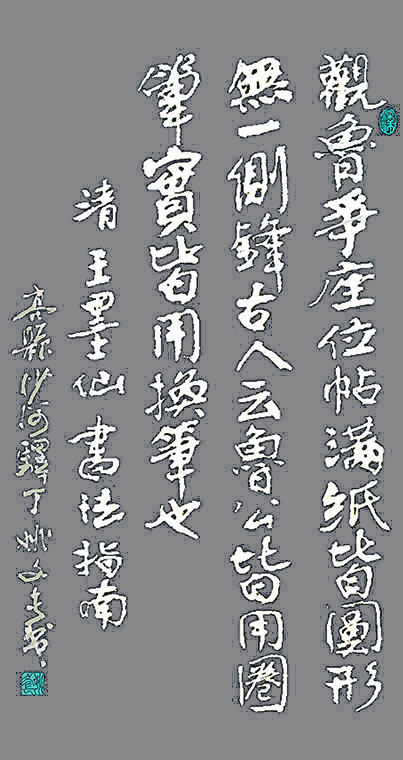 觀魯爭座位帖滿紙皆圓形
無一側鋒古人云魯公皆用圈
筆實皆用換筆也
清王墨仙書法指南
縣沙河驛丁姚文書